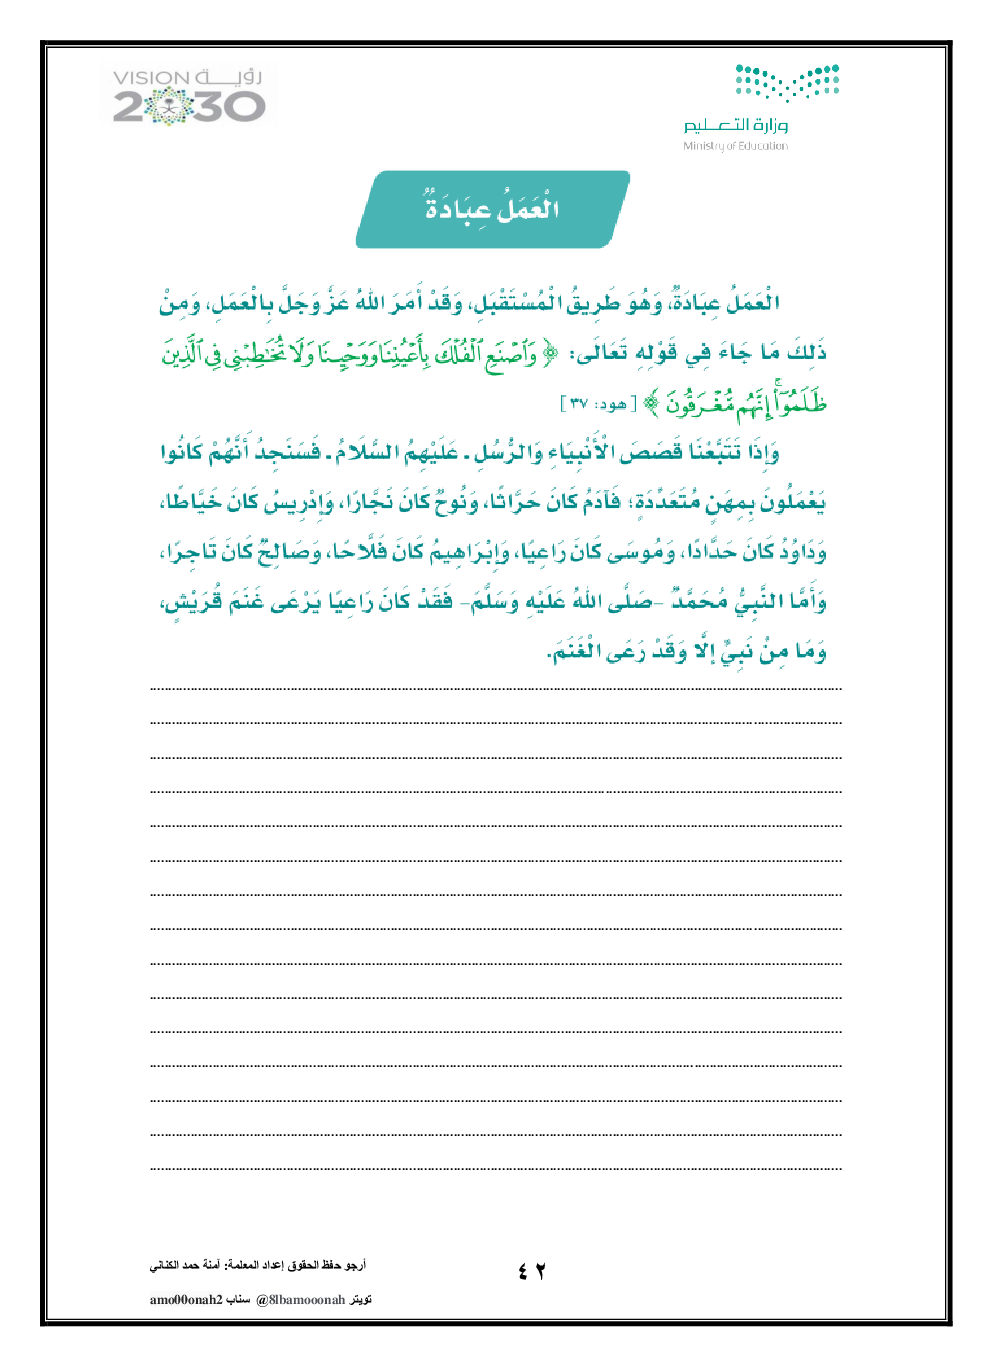 VISION رؤيـــة
2030
وزارة التعـــليم
Ministry of Education
الْعَمَلُ عِبَادَةٌ
الْعَمَلُ عِبَادَةٌ، وَهُوَ طَرِيقُ الْمُسْتَقْبَلِ، وَقَدْ أَمَرَ اللهُ عَزَّ وَجَلَّ بِالْعَمَلِ، وَمِنْ
ذَلِكَ مَا جَاءَ فِي قَوْلِهِ تَعَالَى: ﴿ وَٱصْنَعِ ٱلْفُلْكَ بِأَعْيُنِنَا وَوَحْيِنَا وَلَا تُخَٰطِبْنِي فِي ٱلَّذِينَ
ظَلَمُوٓاْۚ إِنَّهُم مُّغْرَقُونَ ﴾ [هود: ٣٧]
وَإِذَا تَتَبَّعْنَا قَصَصَ الْأَنْبِيَاءِ وَالرُّسُلِ - عَلَيْهِمُ السَّلَامُ - فَسَنَجِدُ أَنَّهُمْ كَانُوا
يَعْمَلُونَ بِمِهَنٍ مُتَعَدِّدَةٍ؛ فَآدَمُ كَانَ حَرَّاثًا، وَنُوحٌ كَانَ نَجَّارًا، وَإِدْرِيسُ كَانَ خَيَّاطًا،
وَدَاوُدُ كَانَ حَدَّادًا، وَمُوسَى كَانَ رَاعِيًا، وَإِبْرَاهِيمُ كَانَ فَلَّاحًا، وَصَالِحٌ كَانَ تَاجِرًا،
وَأَمَّا النَّبِيُّ مُحَمَّدٌ -صَلَّى اللهُ عَلَيْهِ وَسَلَّمَ- فَقَدْ كَانَ رَاعِيًا يَرْعَى غَنَمَ قُرَيْشٍ،
وَمَا مِنْ نَبِيٍّ إِلَّا وَقَدْ رَعَى الْغَنَمَ.
أرجو حفظ الحقوق إعداد المعلمة: آمنة حمد الكناني
٤٢
تويتر @8lbamooonah سناب amo00onah2